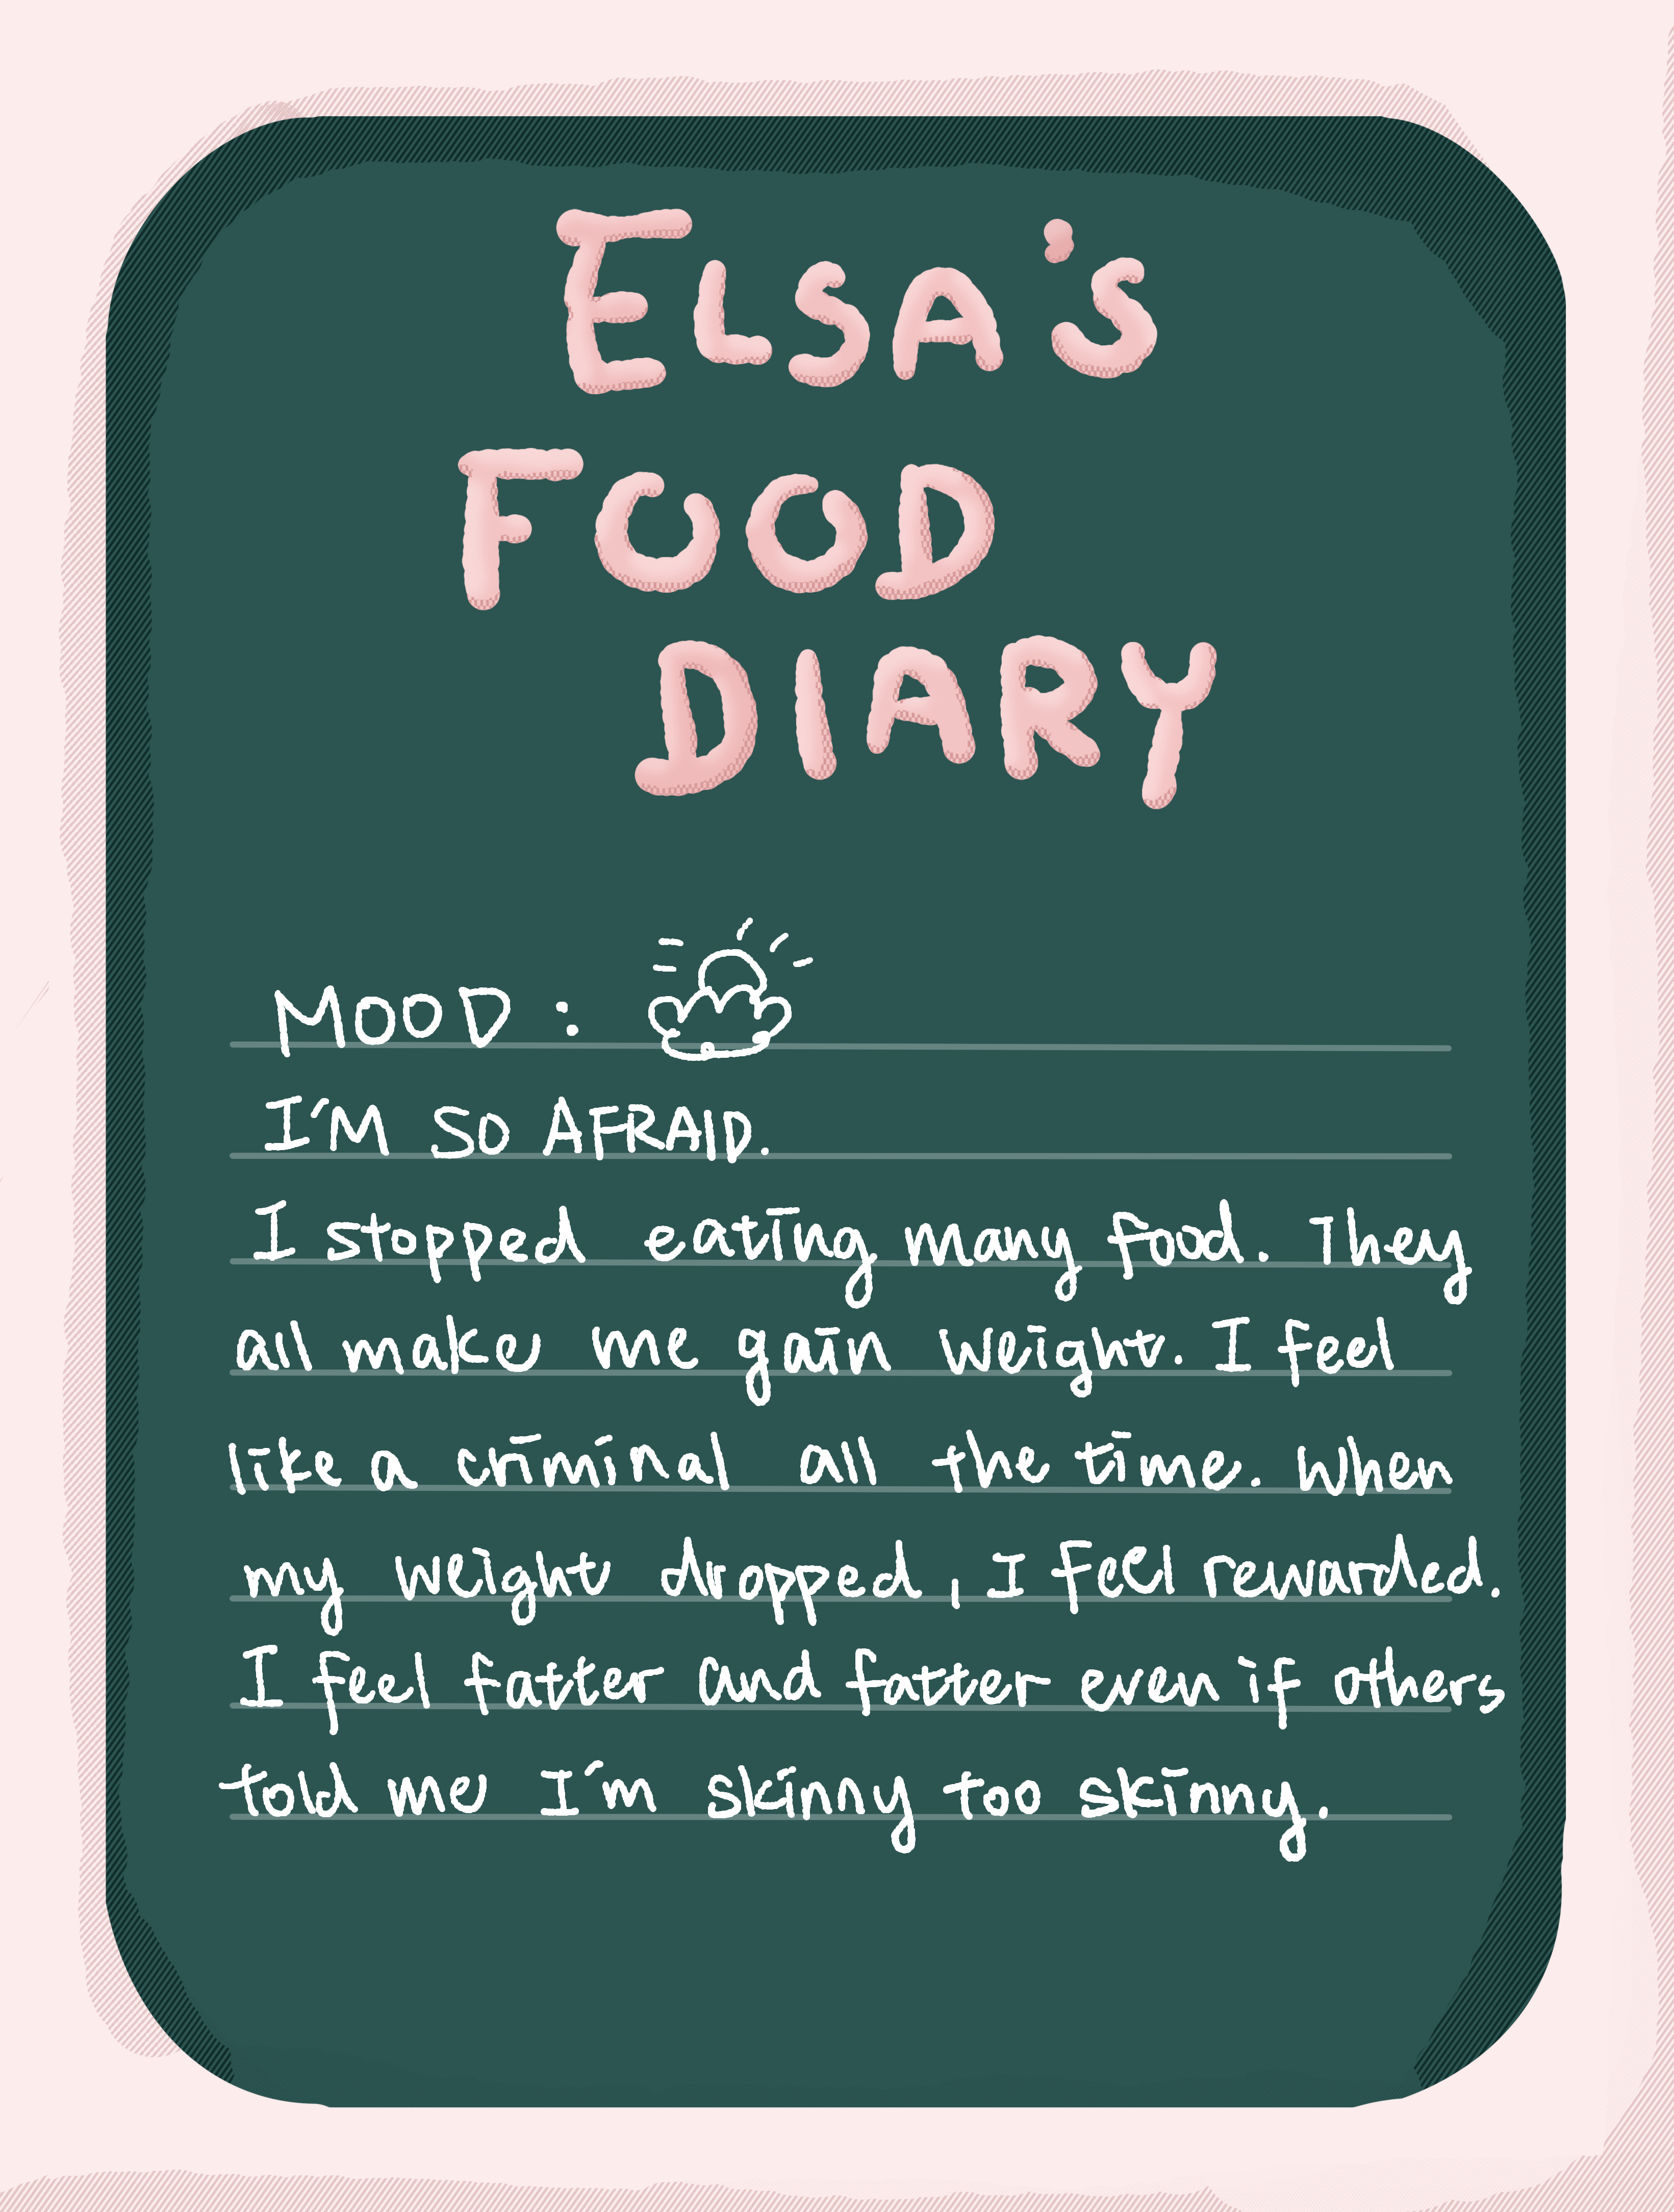 ELSA'S
FOOD
DIARY
MOOD :
I'M SO AFRAID.
I stopped eating many food. They
all make me gain weight. I feel
like a criminal all the time. When
my weight dropped, I feel rewarded.
I feel fatter and fatter even if others
told me I'm skinny too skinny.